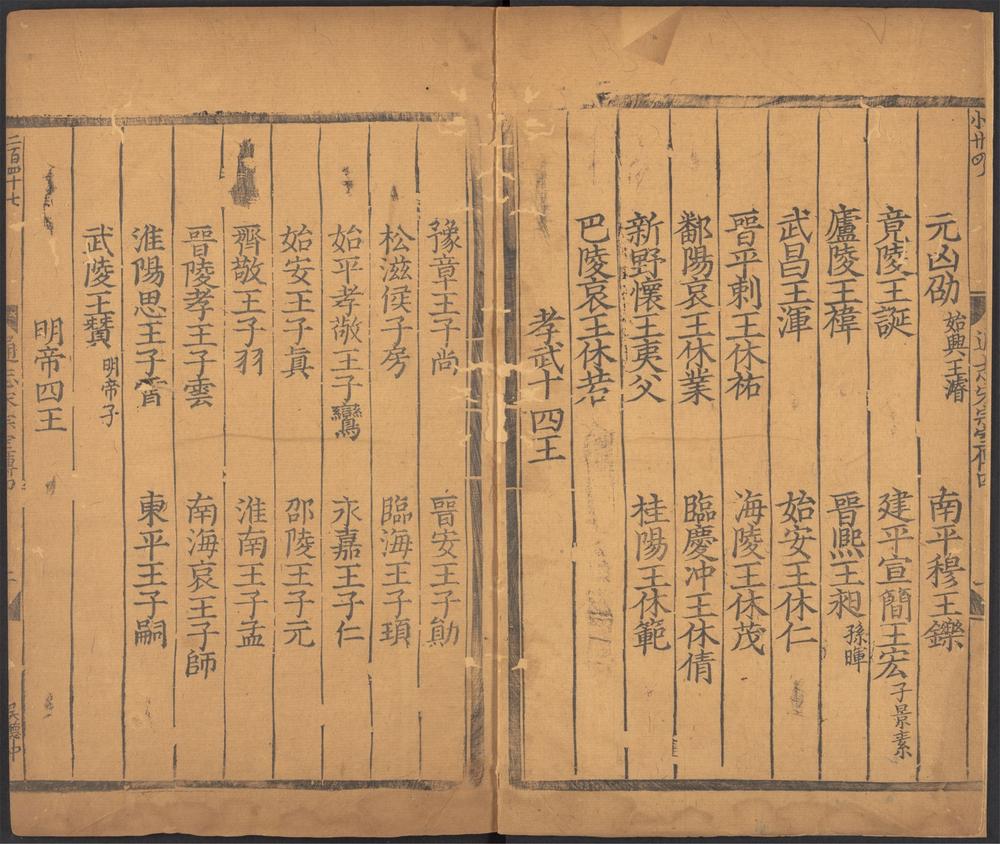 元凶劭 始興王濬 南平穆王鑠
竟陵王誕 建平宣簡王宏 子景素
廬陵王禕 晉熙王昶 孫暉
武昌王渾 始安王休仁
晉平剌王休祐 海陵王休茂
鄱陽哀王休業 臨慶冲王休倩
新野懷王夷父 桂陽王休範
巴陵哀王休若
孝武十四王
豫章王子尚 晉安王子勛
松滋侯子房 臨海王子頊
始平孝敬王子鸞 永嘉王子仁
始安王子真 邵陵王子元
齊敬王子羽 淮南王子孟
晉陵孝王子雲 南海哀王子師
淮陽思王子霄 東平王子嗣
武陵王贊 明帝子
明帝四王
二百四十七